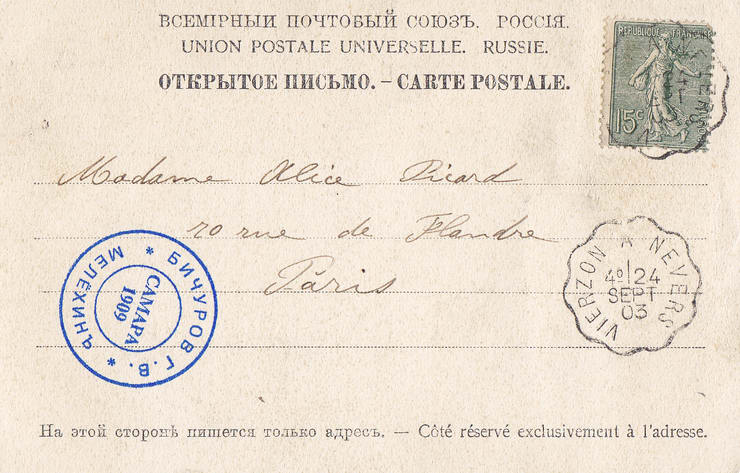 ВСЕМІРНЫИ ПОЧТОВЫЙ СОЮЗЪ. РОССІЯ.
UNION POSTALE UNIVERSELLE. RUSSIE.
ОТКРЫТОЕ ПИСЬМО. – CARTE POSTALE.
REPUBLIQUE FRANÇAISE
15c
Madame Alice Picard
70 rue de Flandre
Paris
VIERZON A NEVERS
4º 24
SEPT
03
БИЧУРОВ Г. В. * ЯНЪ МЕЛЕХИН *
САМАРА
1909
На этой сторонѣ пишется только адресъ. — Côté réservé exclusivement à l'adresse.